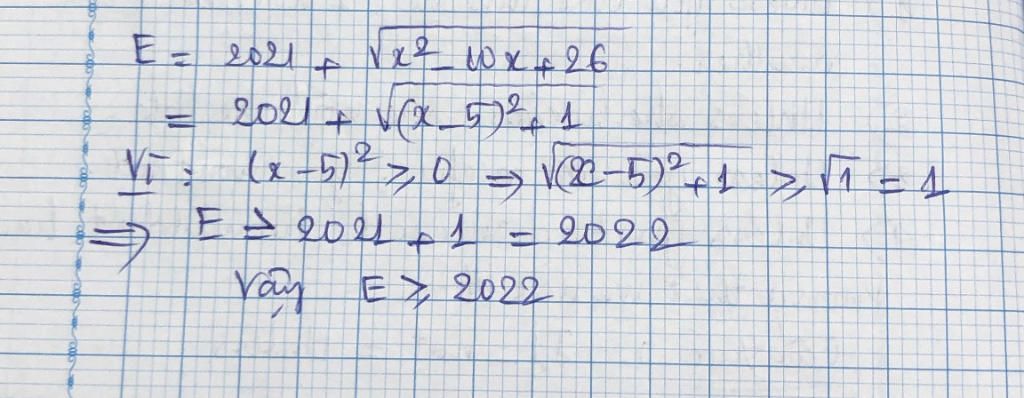 E = 2021 + √(x² - 10x + 26)
= 2021 + √((x - 5)² + 1)
Vì : (x - 5)² ⩾ 0 ⇒ √((x - 5)² + 1) ⩾ √1 = 1
⇒ E ⩾ 2021 + 1 = 2022
Vậy E ⩾ 2022